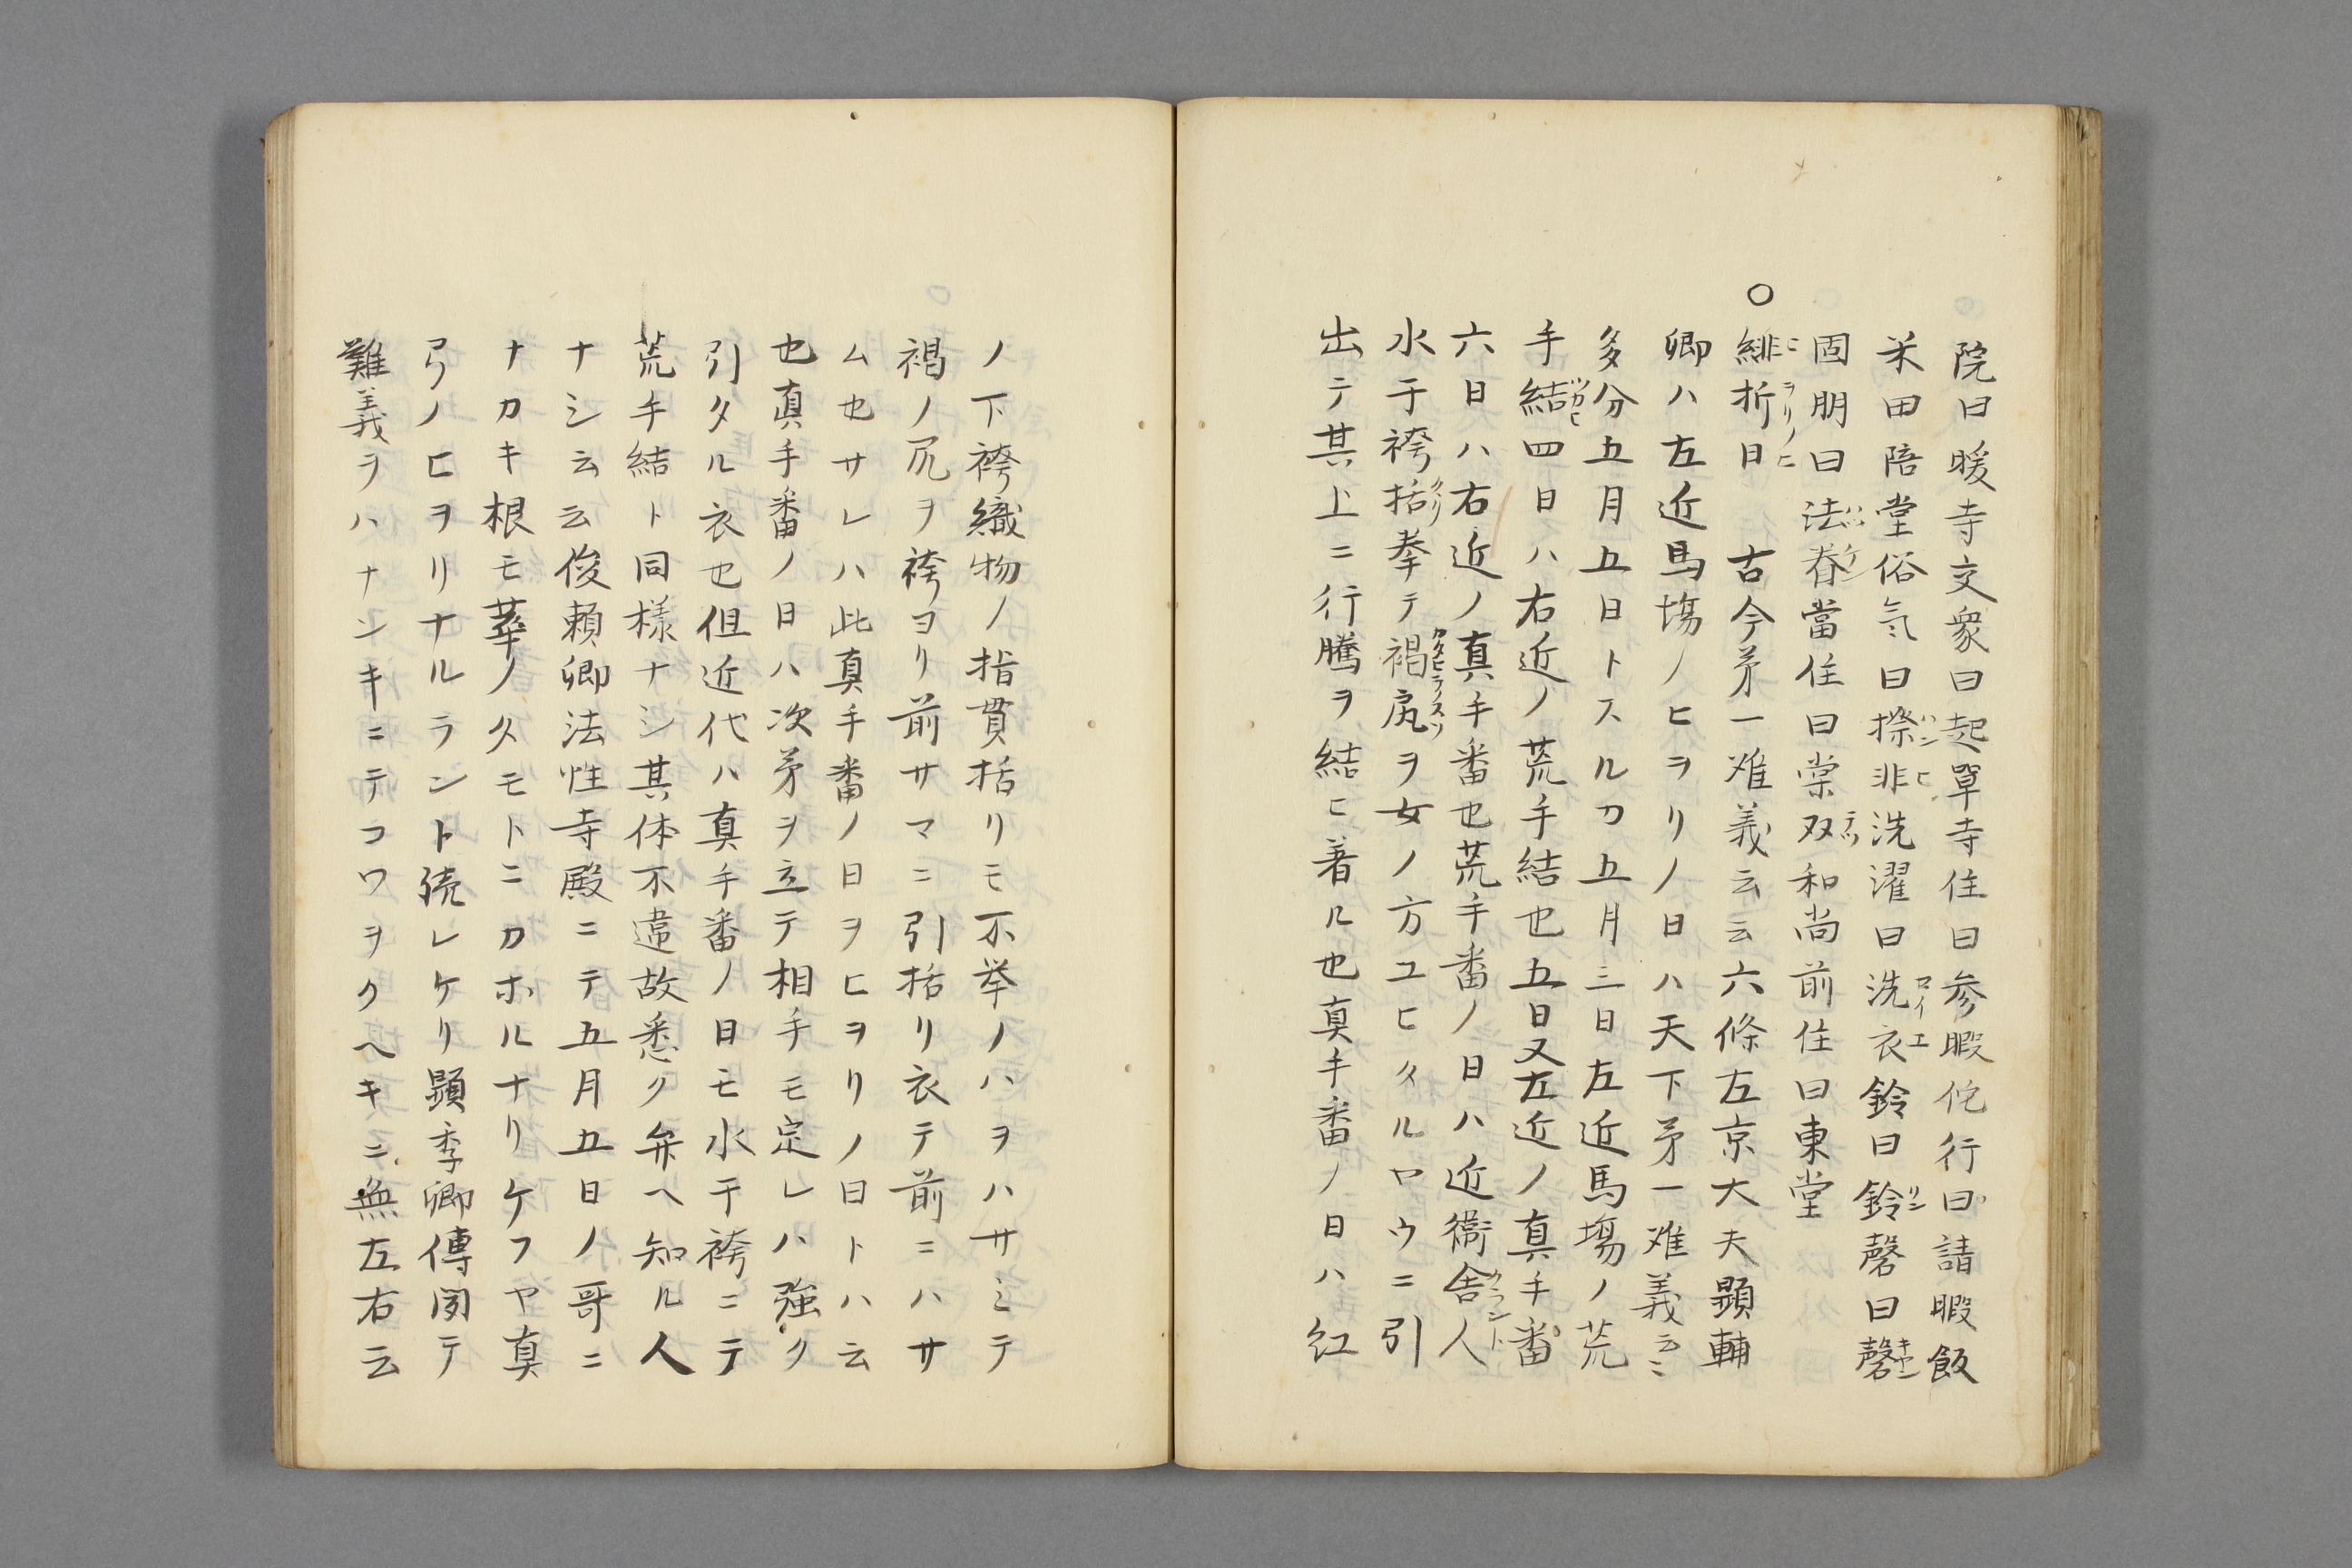 院曰暖寺交衆曰起單寺住曰参暇佗行曰請暇飯
米田陪堂俗氣曰摖非洗濯曰洗衣鈴曰鈴磬曰磬
固朋曰法眷當住曰棠双和尚前住曰東堂
○緋折日 古今㐧一难義云云六條左京大夫顕輔
卿ハ左近馬塲ノヒヲリノ日ハ天下㐧一难義云ニ
多分五月五日トスルカ五月三日左近馬塲ノ荒
手結四日ハ右近ノ荒手結也五日又左近ノ真手番
六日ハ右近ノ真手番也荒手番ノ日ハ近衞舎人
水干袴括拳テ褐尻ヲ女ノ方ユヒタルヤウニ引
出テ其上ニ行騰ヲ結ヒ著ル也真手番ノ日ハ紅
ノ下袴織物ノ指貫括リモ不挙ノハヲハサミテ
褐ノ尻ヲ袴ヨリ前サマニ引括リ衣テ前ニハサ
ム也サレハ此真手番ノ日ヲヒヲリノ日トハ云
也真手番ノ日ハ次㐧ヲ立テ相手モ定レハ強ク
引タル衣也但近代ハ真手番ノ日モ水干袴ニテ
荒手結ト同様ナシ其体不違故悉ク弁ヘ知ル人
ナシ云云俊頼卿法性寺殿ニテ五月五日ノ哥ニ
ナカキ根モ菶ノクモトニカホルナリケフヤ真
弓ノヒヲリナルラント読レケリ顕季卿傳聞テ
難義ヲハナンキニテコワヲクヘキニ無左右云